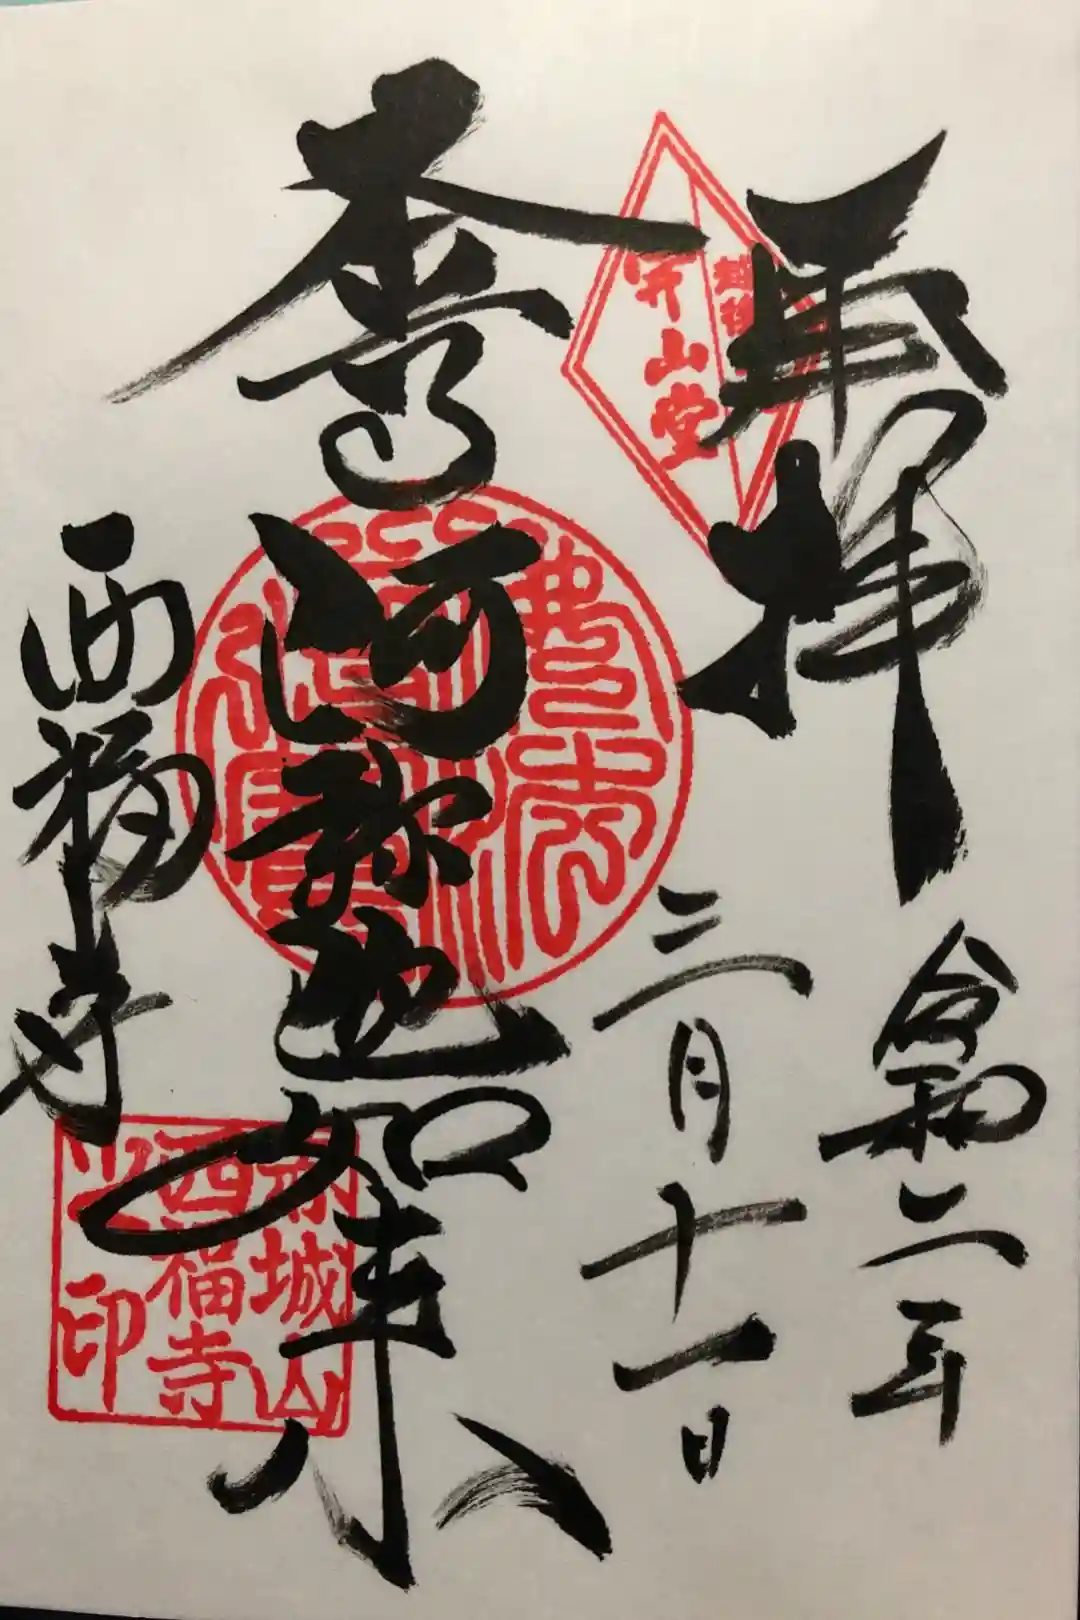 拝
令和二年
三月十一日
開山堂
本尊
阿弥陀如来
西福寺
赤城山
西福寺
之印